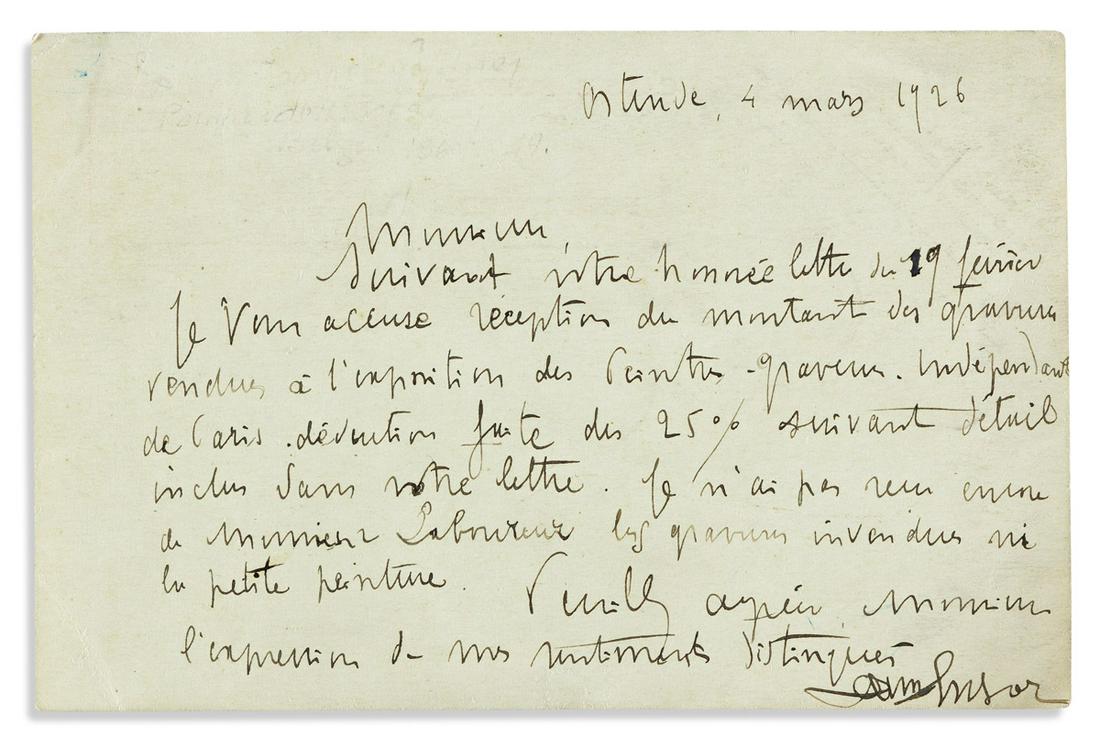 Ostende, 4 mars 1926
Monsieur,
Suivant votre honorée lettre du 19 février
Je Vous accuse réception du montant des gravures
vendues à l'exposition des Peintres-graveurs. Indépendants
de Paris. déduction faite des 25% suivant détail
inclus dans votre lettre. Je n'ai pas reçu encore
de Monsieur Laboureur les gravures invendues ni
la petite peinture.
Veuillez agréer, Monsieur
l'expression de mes sentiments distingués
James Ensor